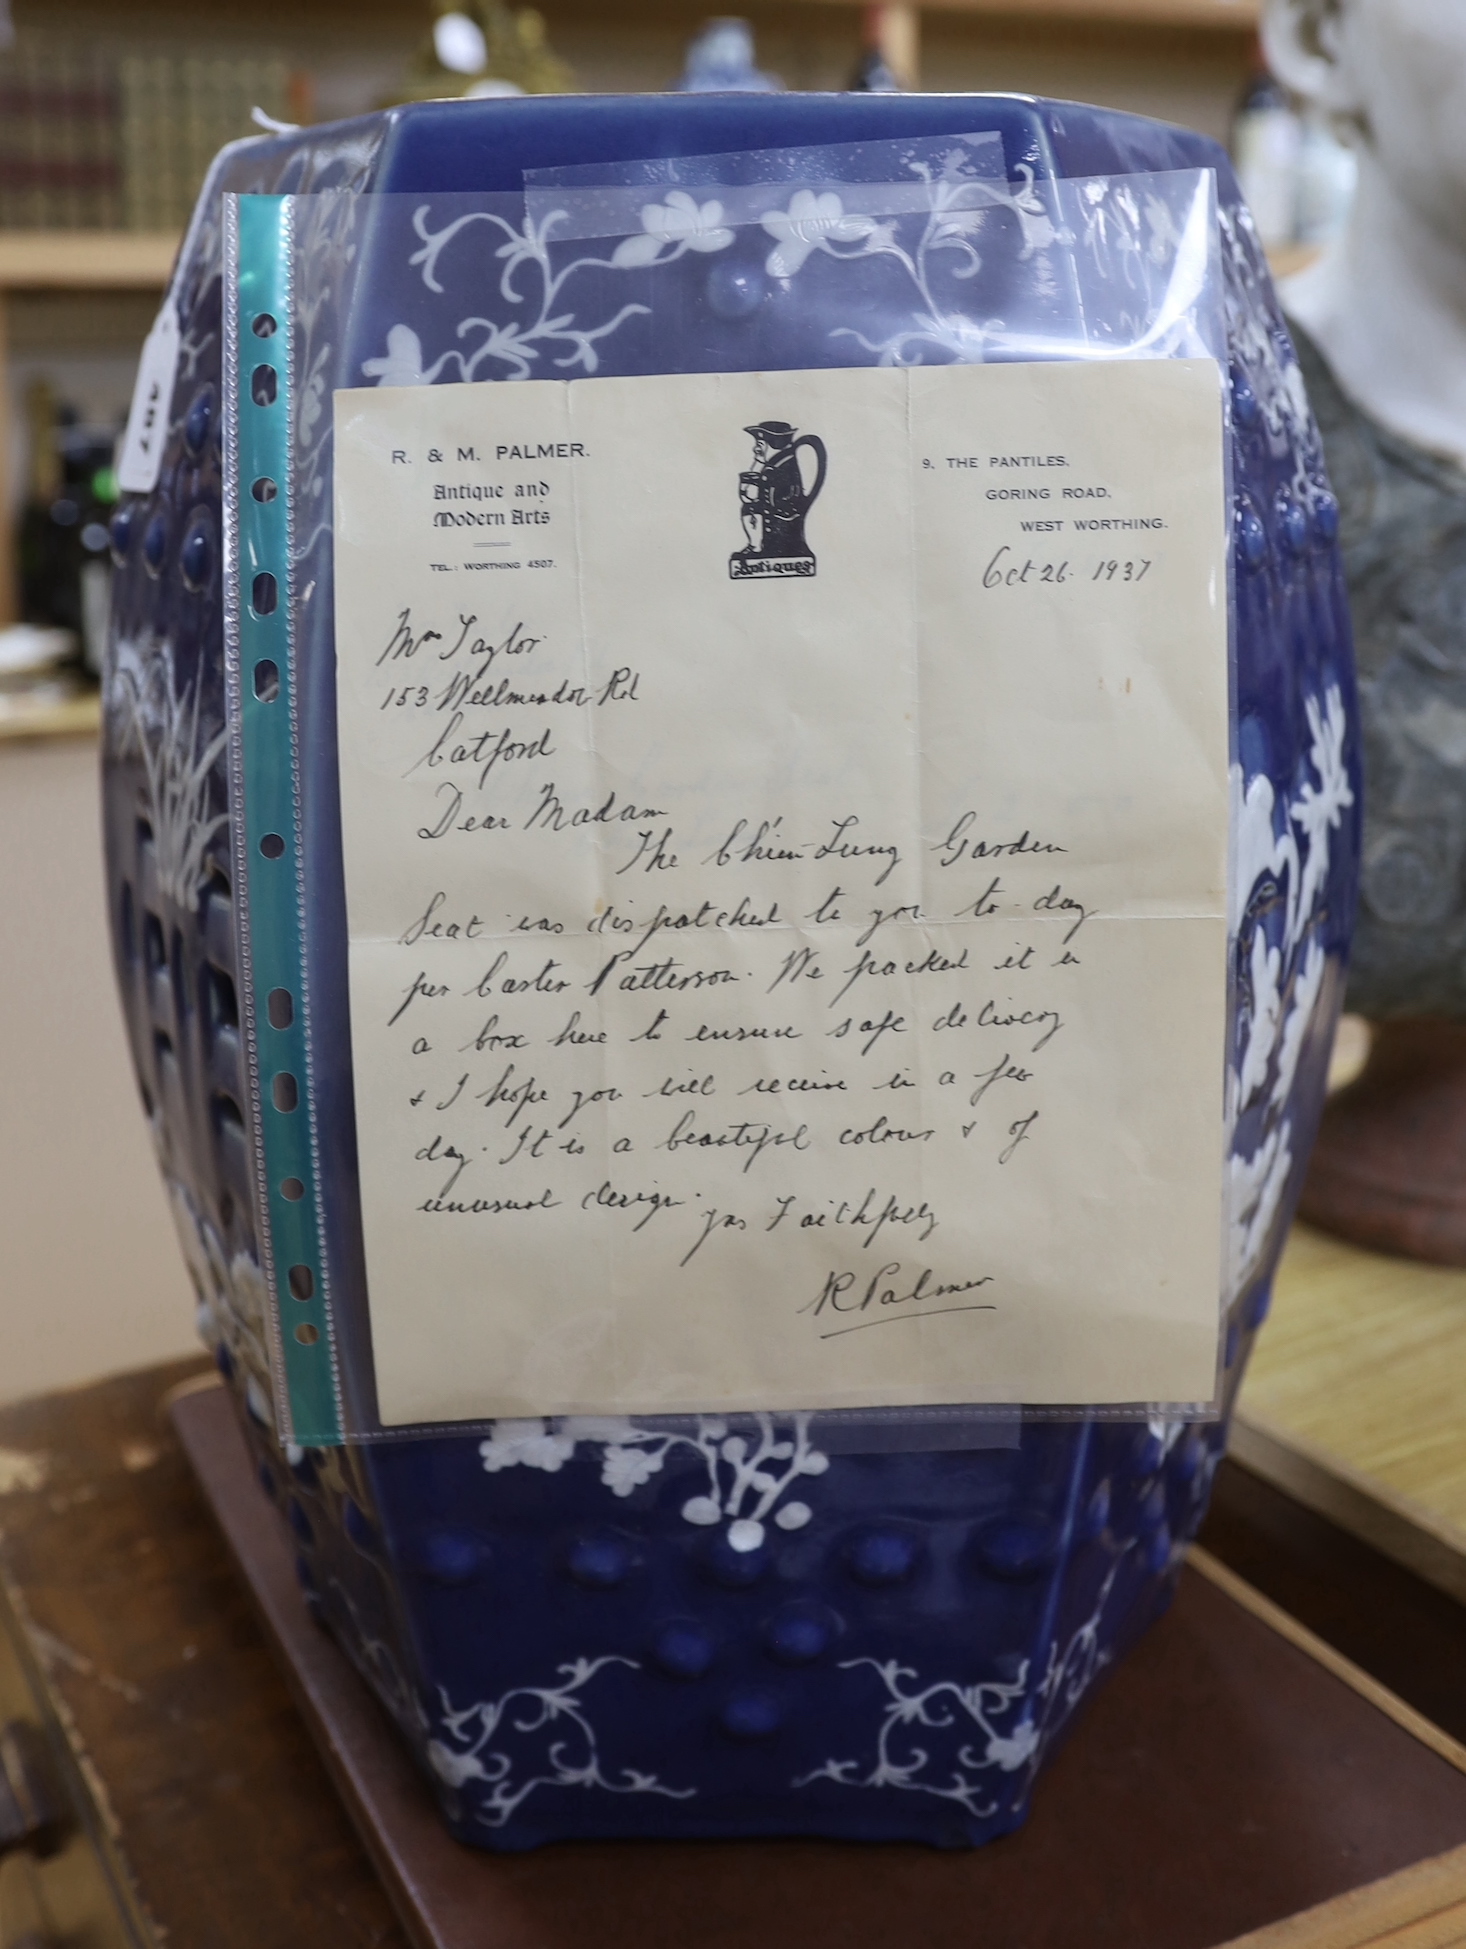 487
R. & M. PALMER.
Antique and
Modern Arts
TEL.: WORTHING 4507.
Antiques
9, THE PANTILES,
GORING ROAD,
WEST WORTHING.
Oct 26. 1937
Mrs Taylor
153 Wellmeadow Rd
Catford
Dear Madam
The Ch'ien-Lung Garden
Seat was dispatched to you to-day
per Carter Patterson. We packed it in
a box here to ensure safe delivery
& I hope you will receive in a few
day. It is a beautiful colour & of
unusual design.
Yrs Faithfully
R Palmer